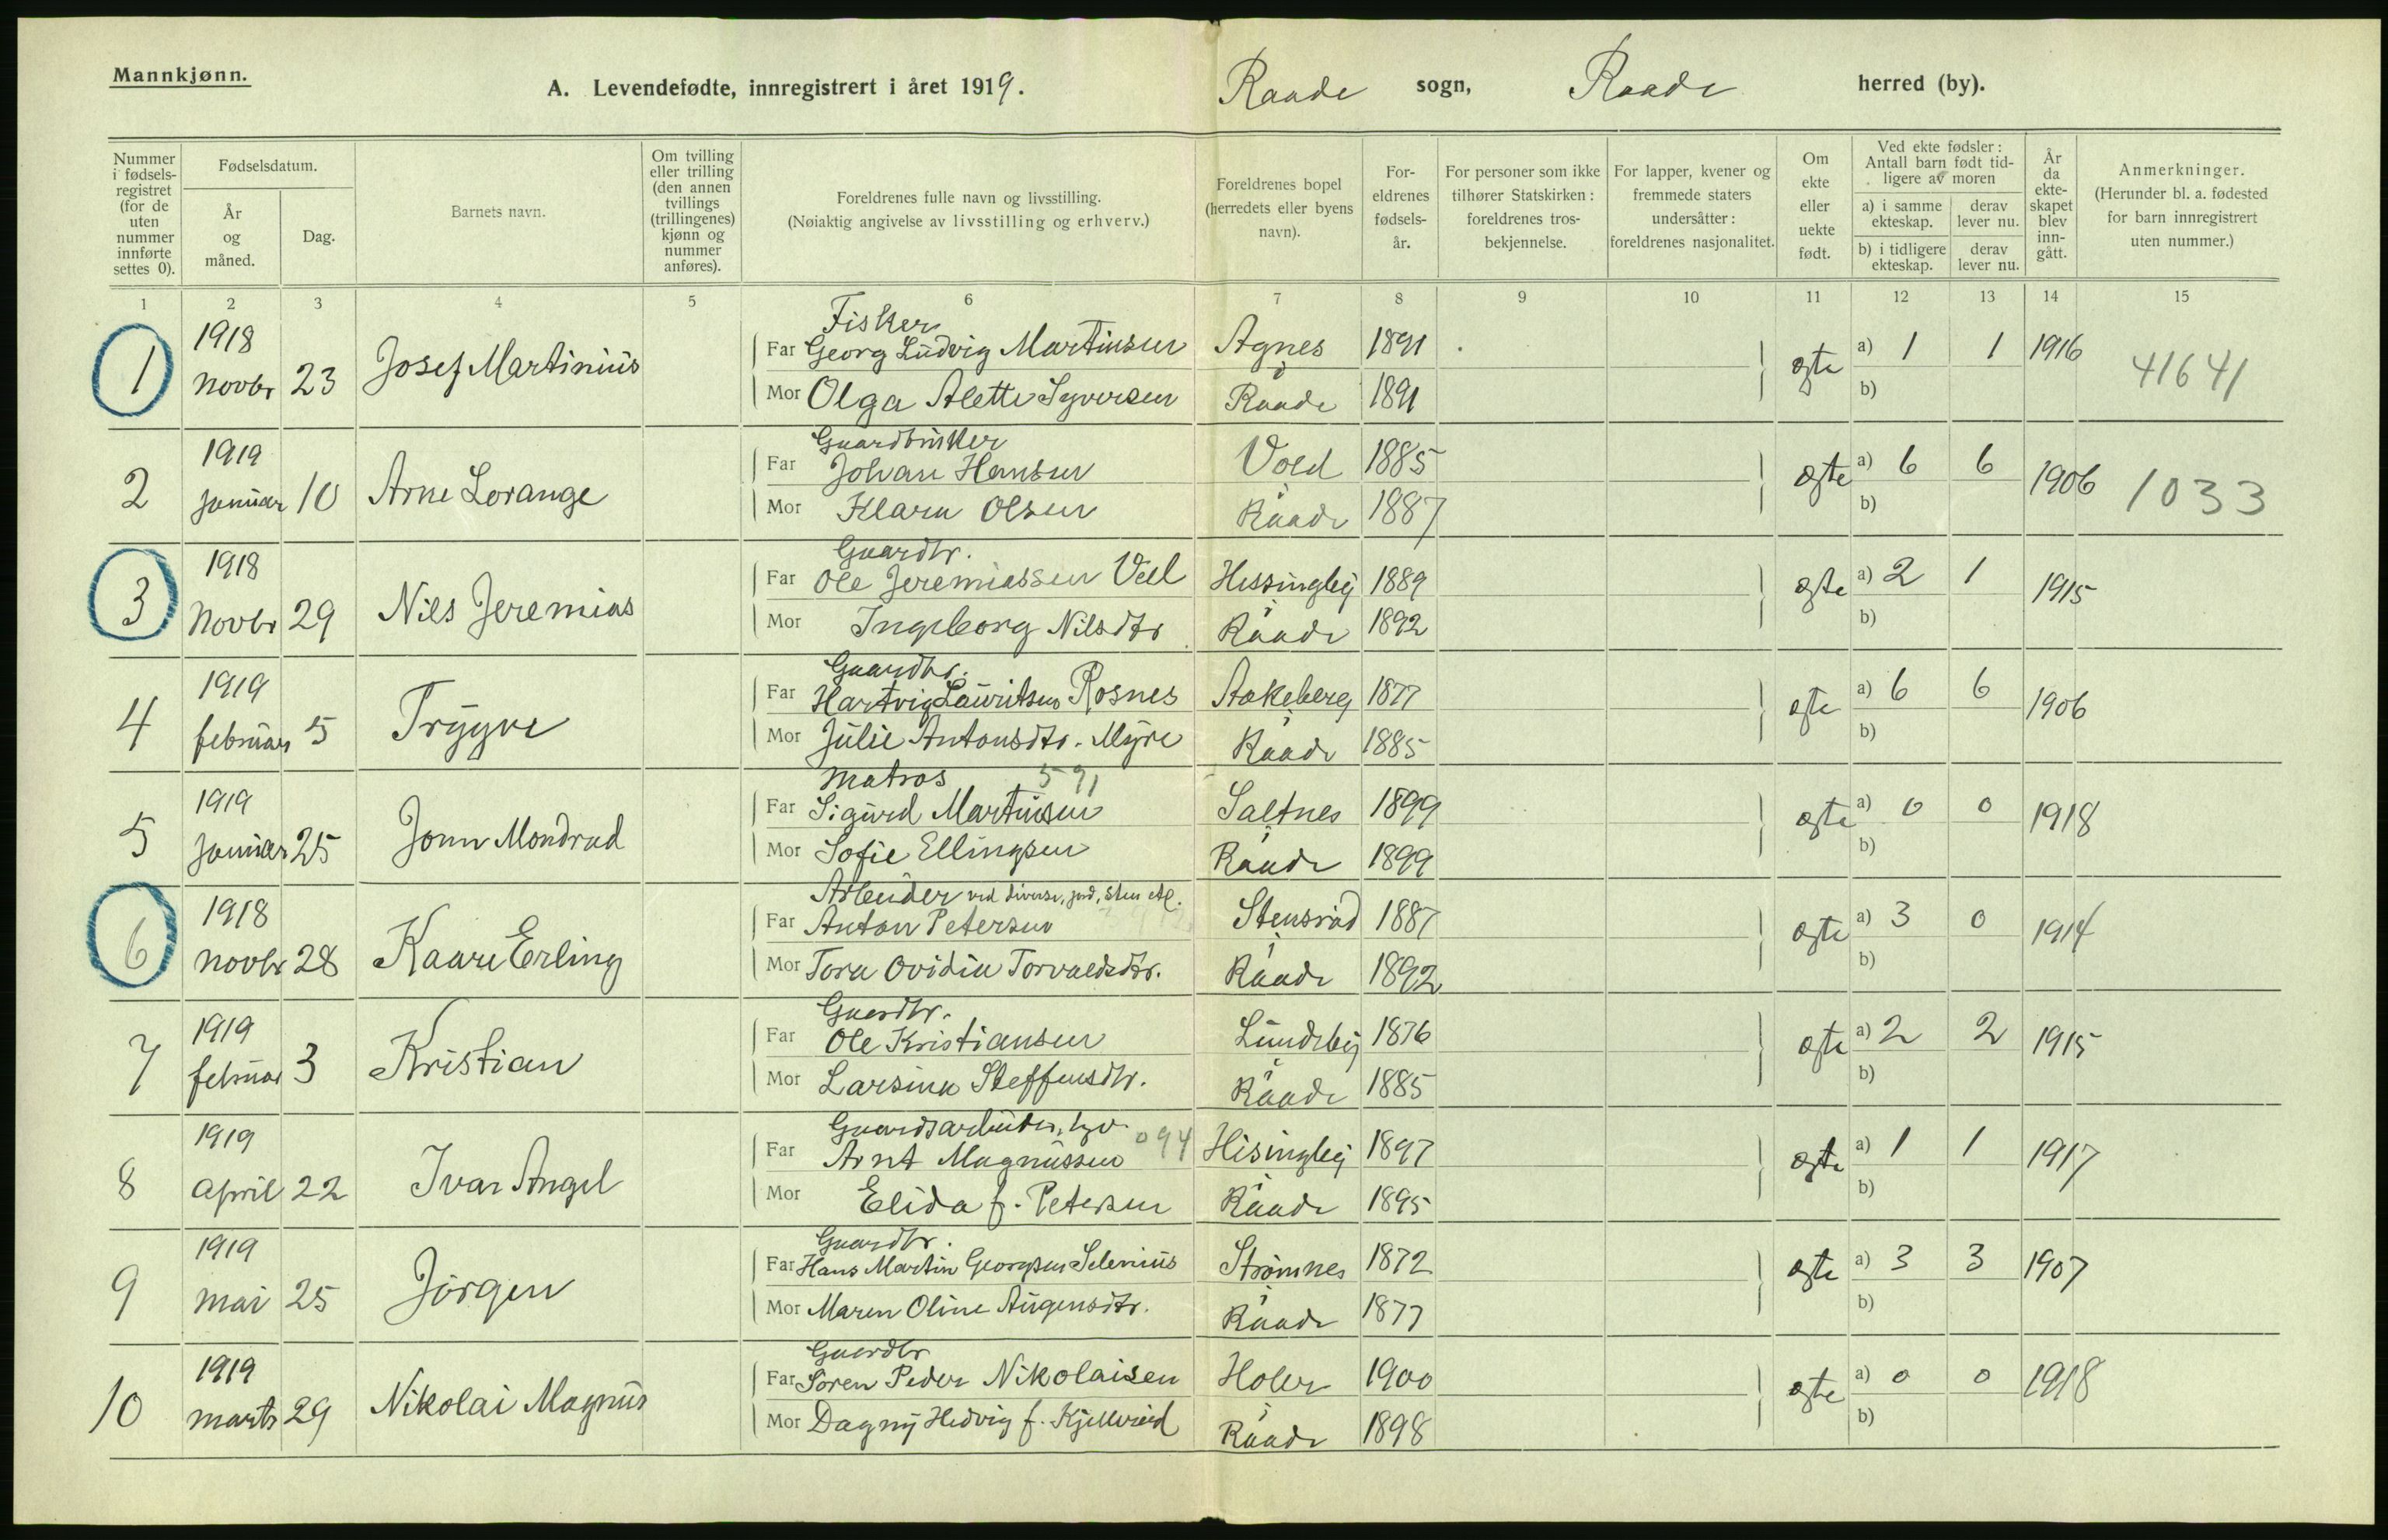 Mannkjønn.
A. Levendefødte, innregistrert i året 1919. Raade sogn, Raade herred (by).
Nummer i fødsels-registret (for de uten nummer innførte settes 0).
Fødselsdatum.
År og måned.
Dag.
Barnets navn.
Om tvilling eller trilling (den annen tvillings (trillingenes) kjønn og nummer anføres).
Foreldrenes fulle navn og livsstilling.
(Nøiaktig angivelse av livsstilling og erhverv.)
Foreldrenes bopel (herredets eller byens navn).
For-eldrenes fødsels-år.
For personer som ikke tilhører Statskirken: foreldrenes tros-bekjennelse.
For lapper, kvener og fremmede staters undersåtter: foreldrenes nasjonalitet.
Om ekte eller uekte født.
Ved ekte fødsler: Antall barn født tid-ligere av moren
a) i samme ekteskap.
derav lever nu.
b) i tidligere ekteskap.
derav lever nu.
År da ekte-skapet blev inn-gått.
Anmerkninger.
(Herunder bl. a. fødested for barn innregistrert uten nummer.)
1 2 3 4 5 6 7 8 9 10 11 12 13 14 15
Fisker
1 1918 Novbr 23 Josef Martinius
Far Georg Ludvig Martinsen Agnes 1891 ægte a) 1 1 1916 41641
Mor Olga Alette Syversen i Raade 1891 b)
Gaardbruker
2 1919 Januar 10 Arne Lorange
Far Johan Hansen Vold 1885 ægte a) 6 6 1906 1033
Mor Klara Olsen i Raade 1887 b)
Gaardbr.
3 1918 Novbr 29 Nils Jeremias
Far Ole Jeremiassen Vel Hissingby 1889 ægte a) 2 1 1915
Mor Ingeborg Nilsdtr i Raade 1892 b)
Gaardbr.
4 1919 februar 5 Trygve
Far Hartvig Lauritsen Rosnes Aakeberg 1877 ægte a) 6 6 1906
Mor Julie Antonsdtr. Myre i Raade 1885 b)
Matros 591
5 1919 Januar 25 John Mondrad
Far Sigurd Martinsen Saltnes 1899 ægte a) 0 0 1918
Mor Sofie Ellingsen i Raade 1899 b)
Arbeider ved diverse, jord, sten etc.
6 1918 Novbr 28 Kaare Erling
Far Anton Petersen Stensrød 1887 ægte a) 3 0 1914
Mor Tora Ovidia Torvaldsdtr. i Raade 1892 b)
Gaardbr.
7 1919 februar 3 Kristian
Far Ole Kristiansen Lundeby 1876 ægte a) 2 2 1915
Mor Larsine Steffensdtr. i Raade 1885 b)
Gaardsarbeider 094
8 1919 April 22 Ivar Angel
Far Arnt Magnussen Hisingby 1897 ægte a) 1 1 1917
Mor Elida f. Petersen i Raade 1895 b)
Gaardbr.
9 1919 mai 25 Jörgen
Far Hans Martin Georgsen Selenius Strømnes 1872 ægte a) 3 3 1907
Mor Maren Oline Augensdtr. i Raade 1877 b)
Gaardbr
10 1919 marts 29 Nikolai Magnus
Far Sören Peder Nikolaisen Holer 1900 ægte a) 0 0 1918
Mor Dagny Hedvig f. i Raade 1898 b)